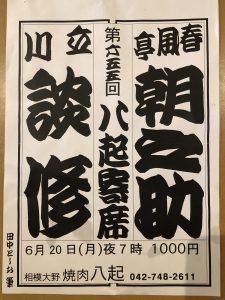 春風亭
朝之助
第六五五回
八起寄席
立川
談修
6月20日(月)夜7時 1000円
相模大野 焼肉八起 042-748-2611